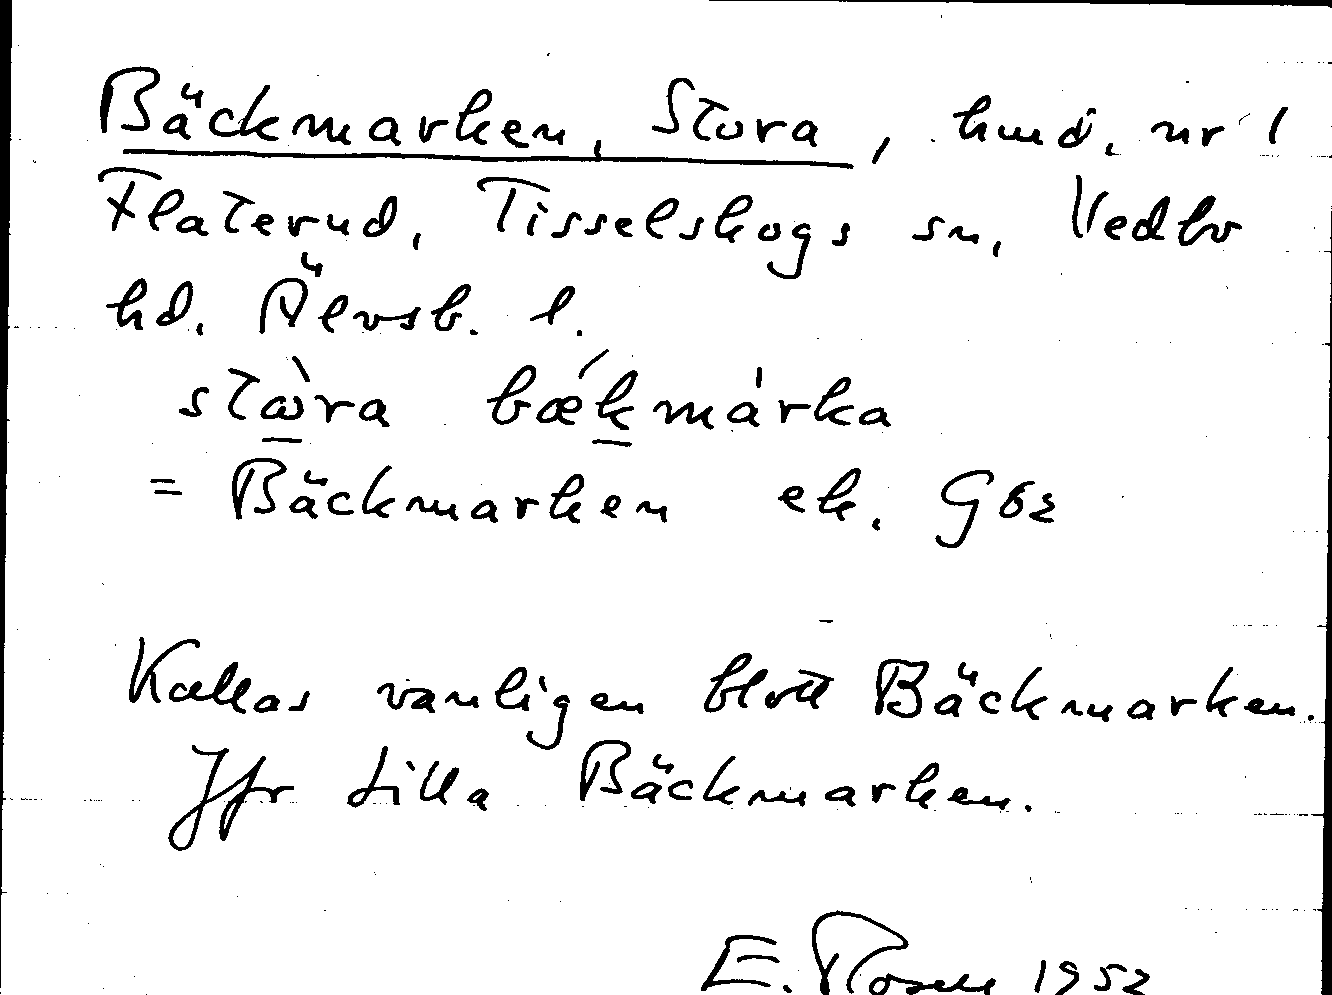 Bäckmarken, Stora, hmd. nr 1
Flaterud, Tisselskogs sn, Vedbo
hd. Älvsb. l.
stὼra bǽkmàrka
= Bäckmarken ek. G6z
Kallas vanligen blott Bäckmarken.
Jfr Lilla Bäckmarken.
E. Rosell 1952